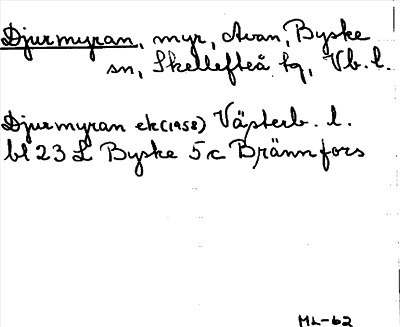 Djurmyran, myr, Avan, Byske
sn, Skellefteå tg, Vb. l.
Djurmyran ek (1958) Västerb. l.
bl 23 L Byske 5 c Brännfors
ML-62